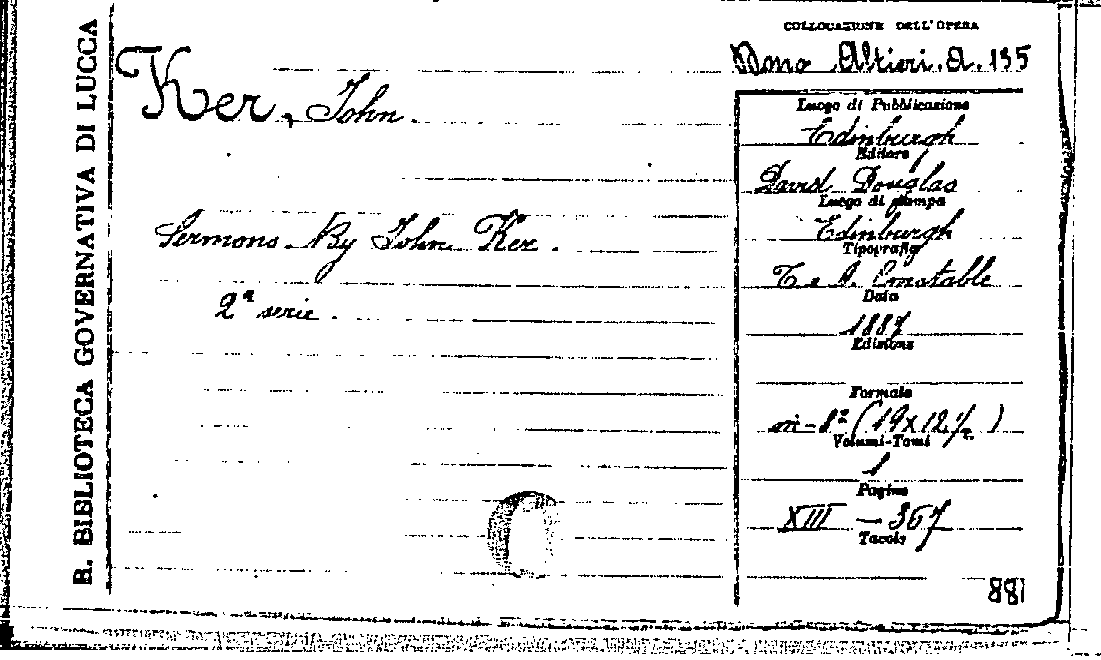 B. BIBLIOTECA GOVERNATIVA DI LUCCA
COLLOCAZIONE DELL'OPERA
Dono Altieri. A. 135
Ker, John.
Sermons By John Ker.
2ª serie.
Luogo di Pubblicazione
Edinburgh
Editore
David Douglas
Luogo di stampa
Edinburgh
Tipografia
T. e A. Constable
Data
1887
Edizione
Formato
in-8º (19x12½)
Volumi-Tomi
1
Pagine
XIII — 367
Tavole
188